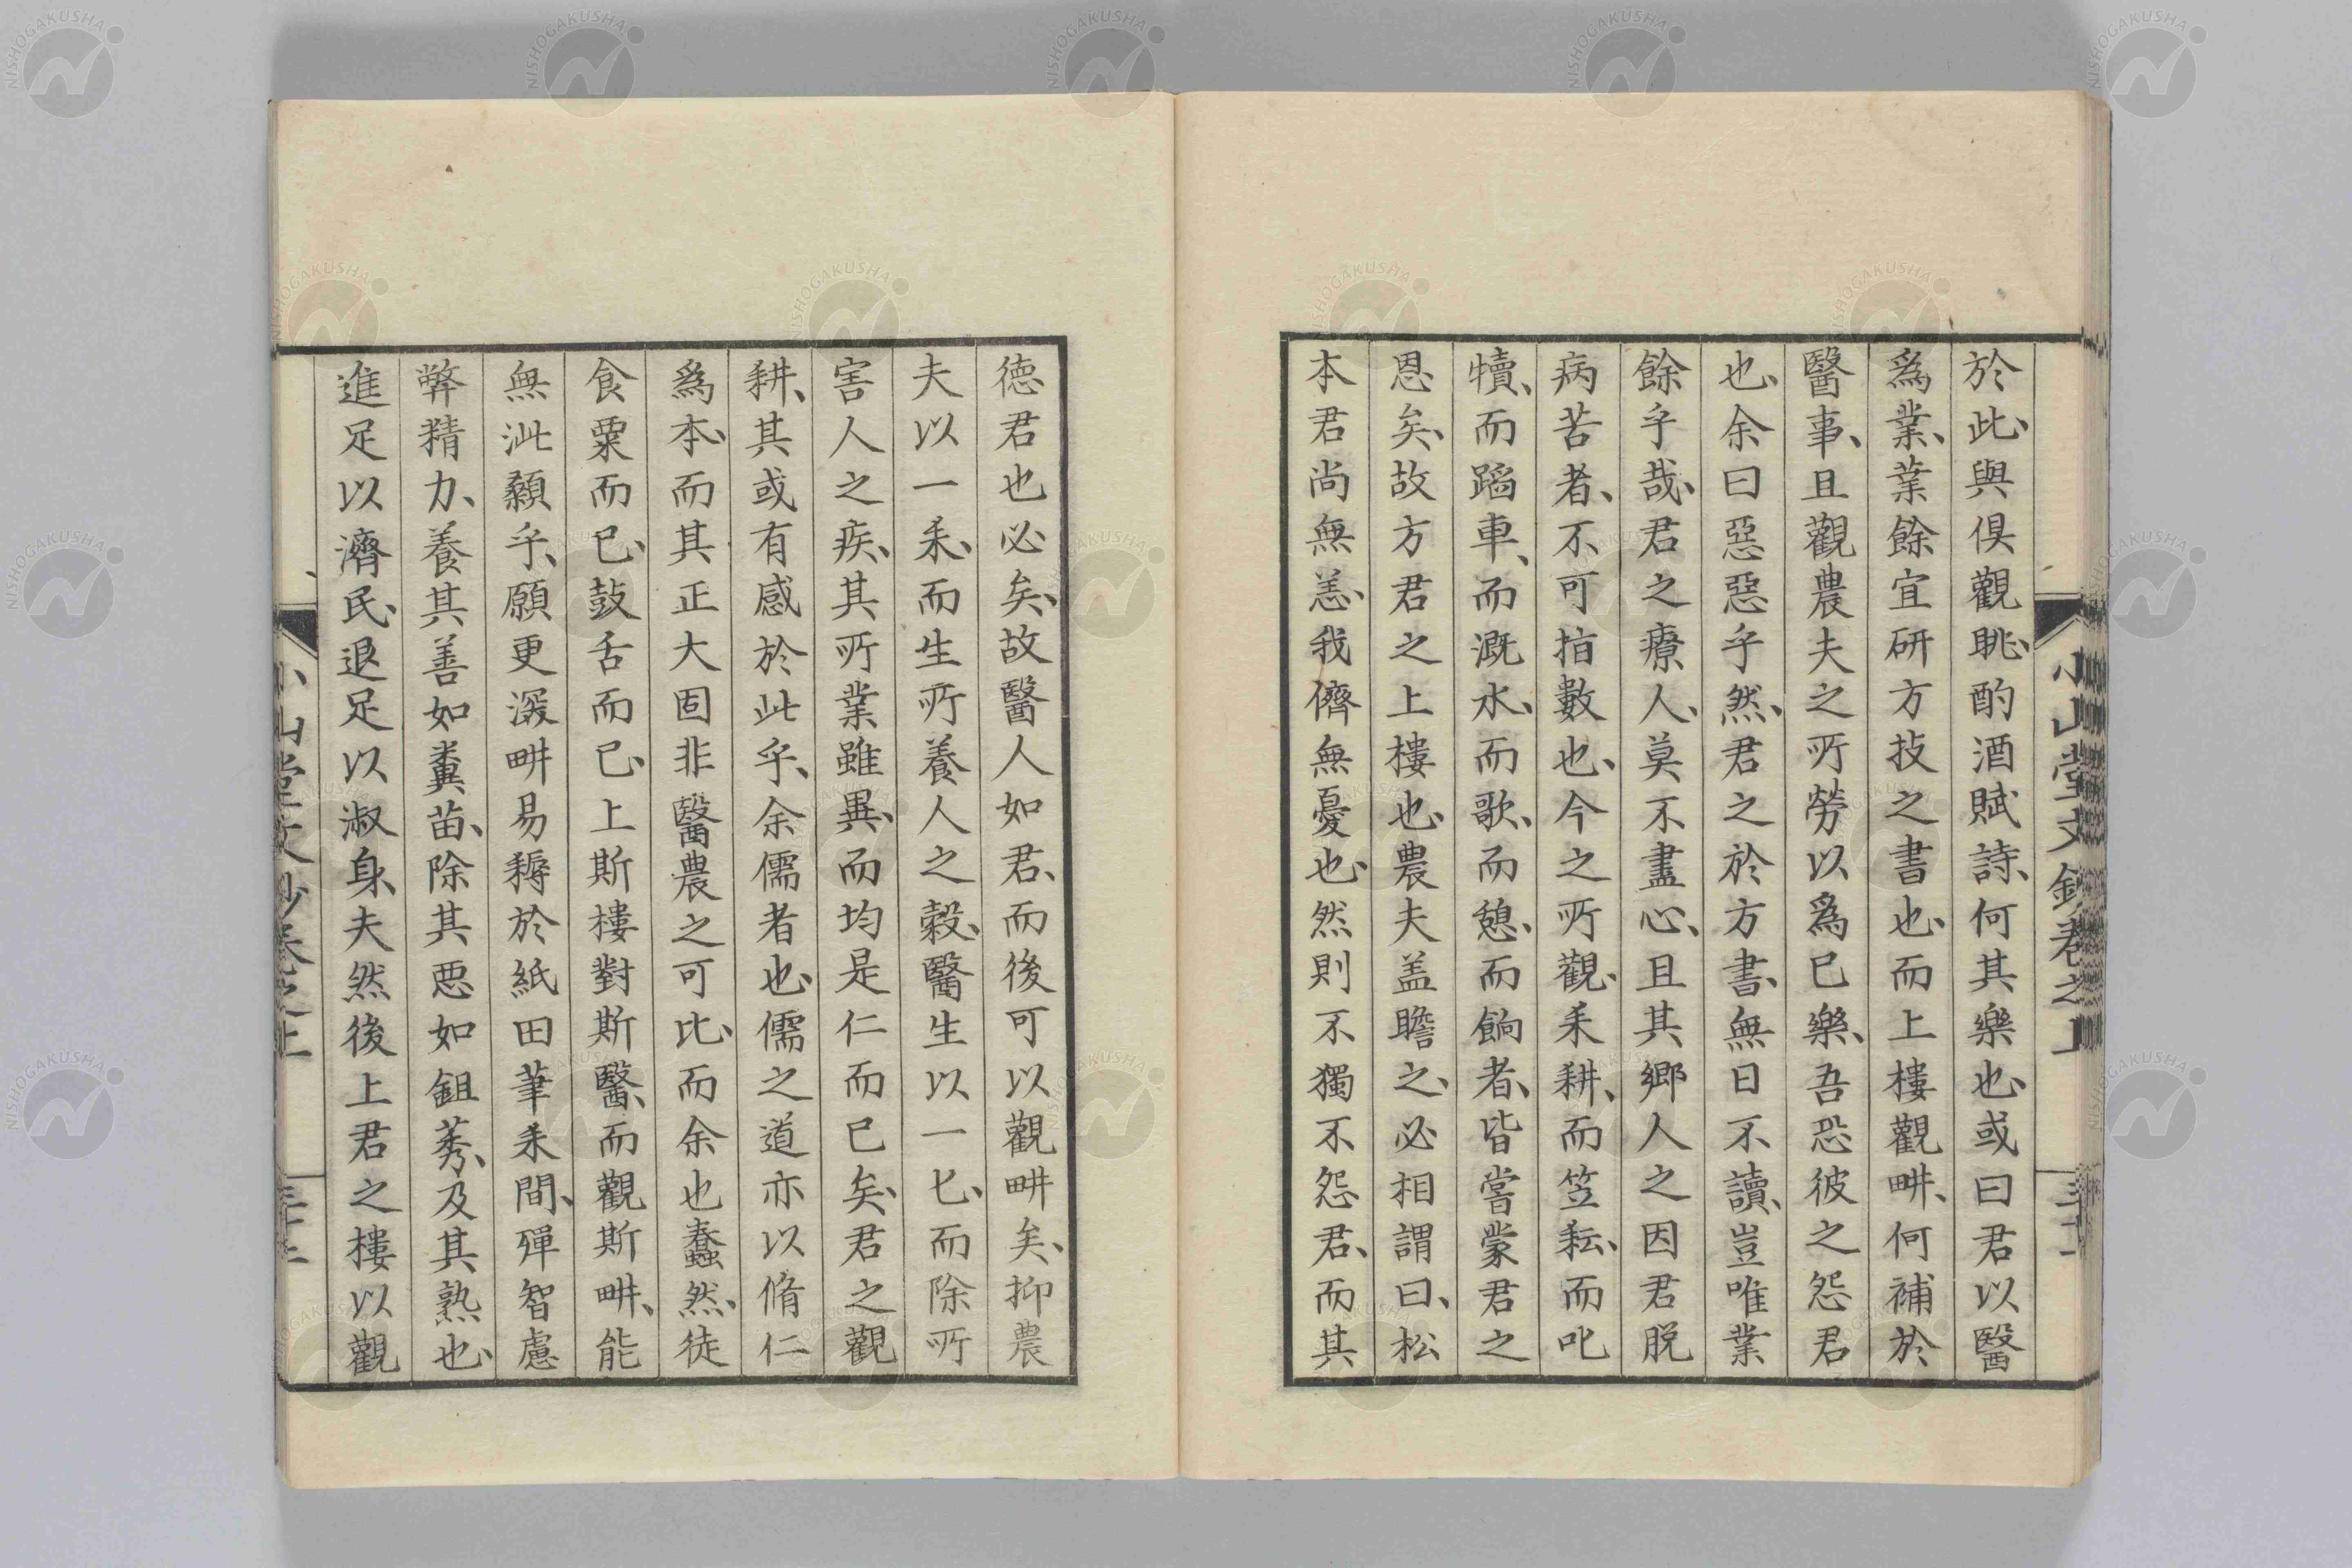 於此、與俱觀眺、酌酒賦詩、何其樂也、或曰君以醫
爲業、業餘宜研方技之書也、而上樓觀畊、何補於
醫事、且觀農夫之所勞以爲已樂、吾恐彼之怨君
也、余曰惡惡乎然、君之於方書、無日不讀、豈唯業
餘乎哉、君之療人、莫不盡心、且其鄉人之因君脫
病苦者、不可指數也、今之所觀、耒耕、而笠耘、而叱
犢、而蹈車、而漑水、而歌、而憩、而餉者、皆嘗蒙君之
恩矣、故方君之上樓也、農夫盖瞻之、必相謂曰、松
本君尚無恙、我儕無憂也、然則不獨不怨君、而其
小山堂文鈔卷之上
三十一
德君也必矣、故醫人如君、而後可以觀畊矣、抑農
夫以一耒、而生所養人之穀、醫生以一匕、而除所
害人之疾、其所業雖異、而均是仁而已矣、君之觀
耕、其或有感於此乎、余儒者也、儒之道亦以脩仁
爲本、而其正大固非醫農之可比、而余也蠢然、徒
食粟而已、鼓舌而已、上斯樓對斯醫、而觀斯畊、能
無泚顙乎、願更深畊易耨於紙田筆耒間、殫智慮
弊精力、養其善如糞苗、除其惡如鉏莠、及其熟也、
進足以濟民、退足以淑身、夫然後上君之樓以觀
小山堂文鈔卷之上
NISHOGAKUSHA